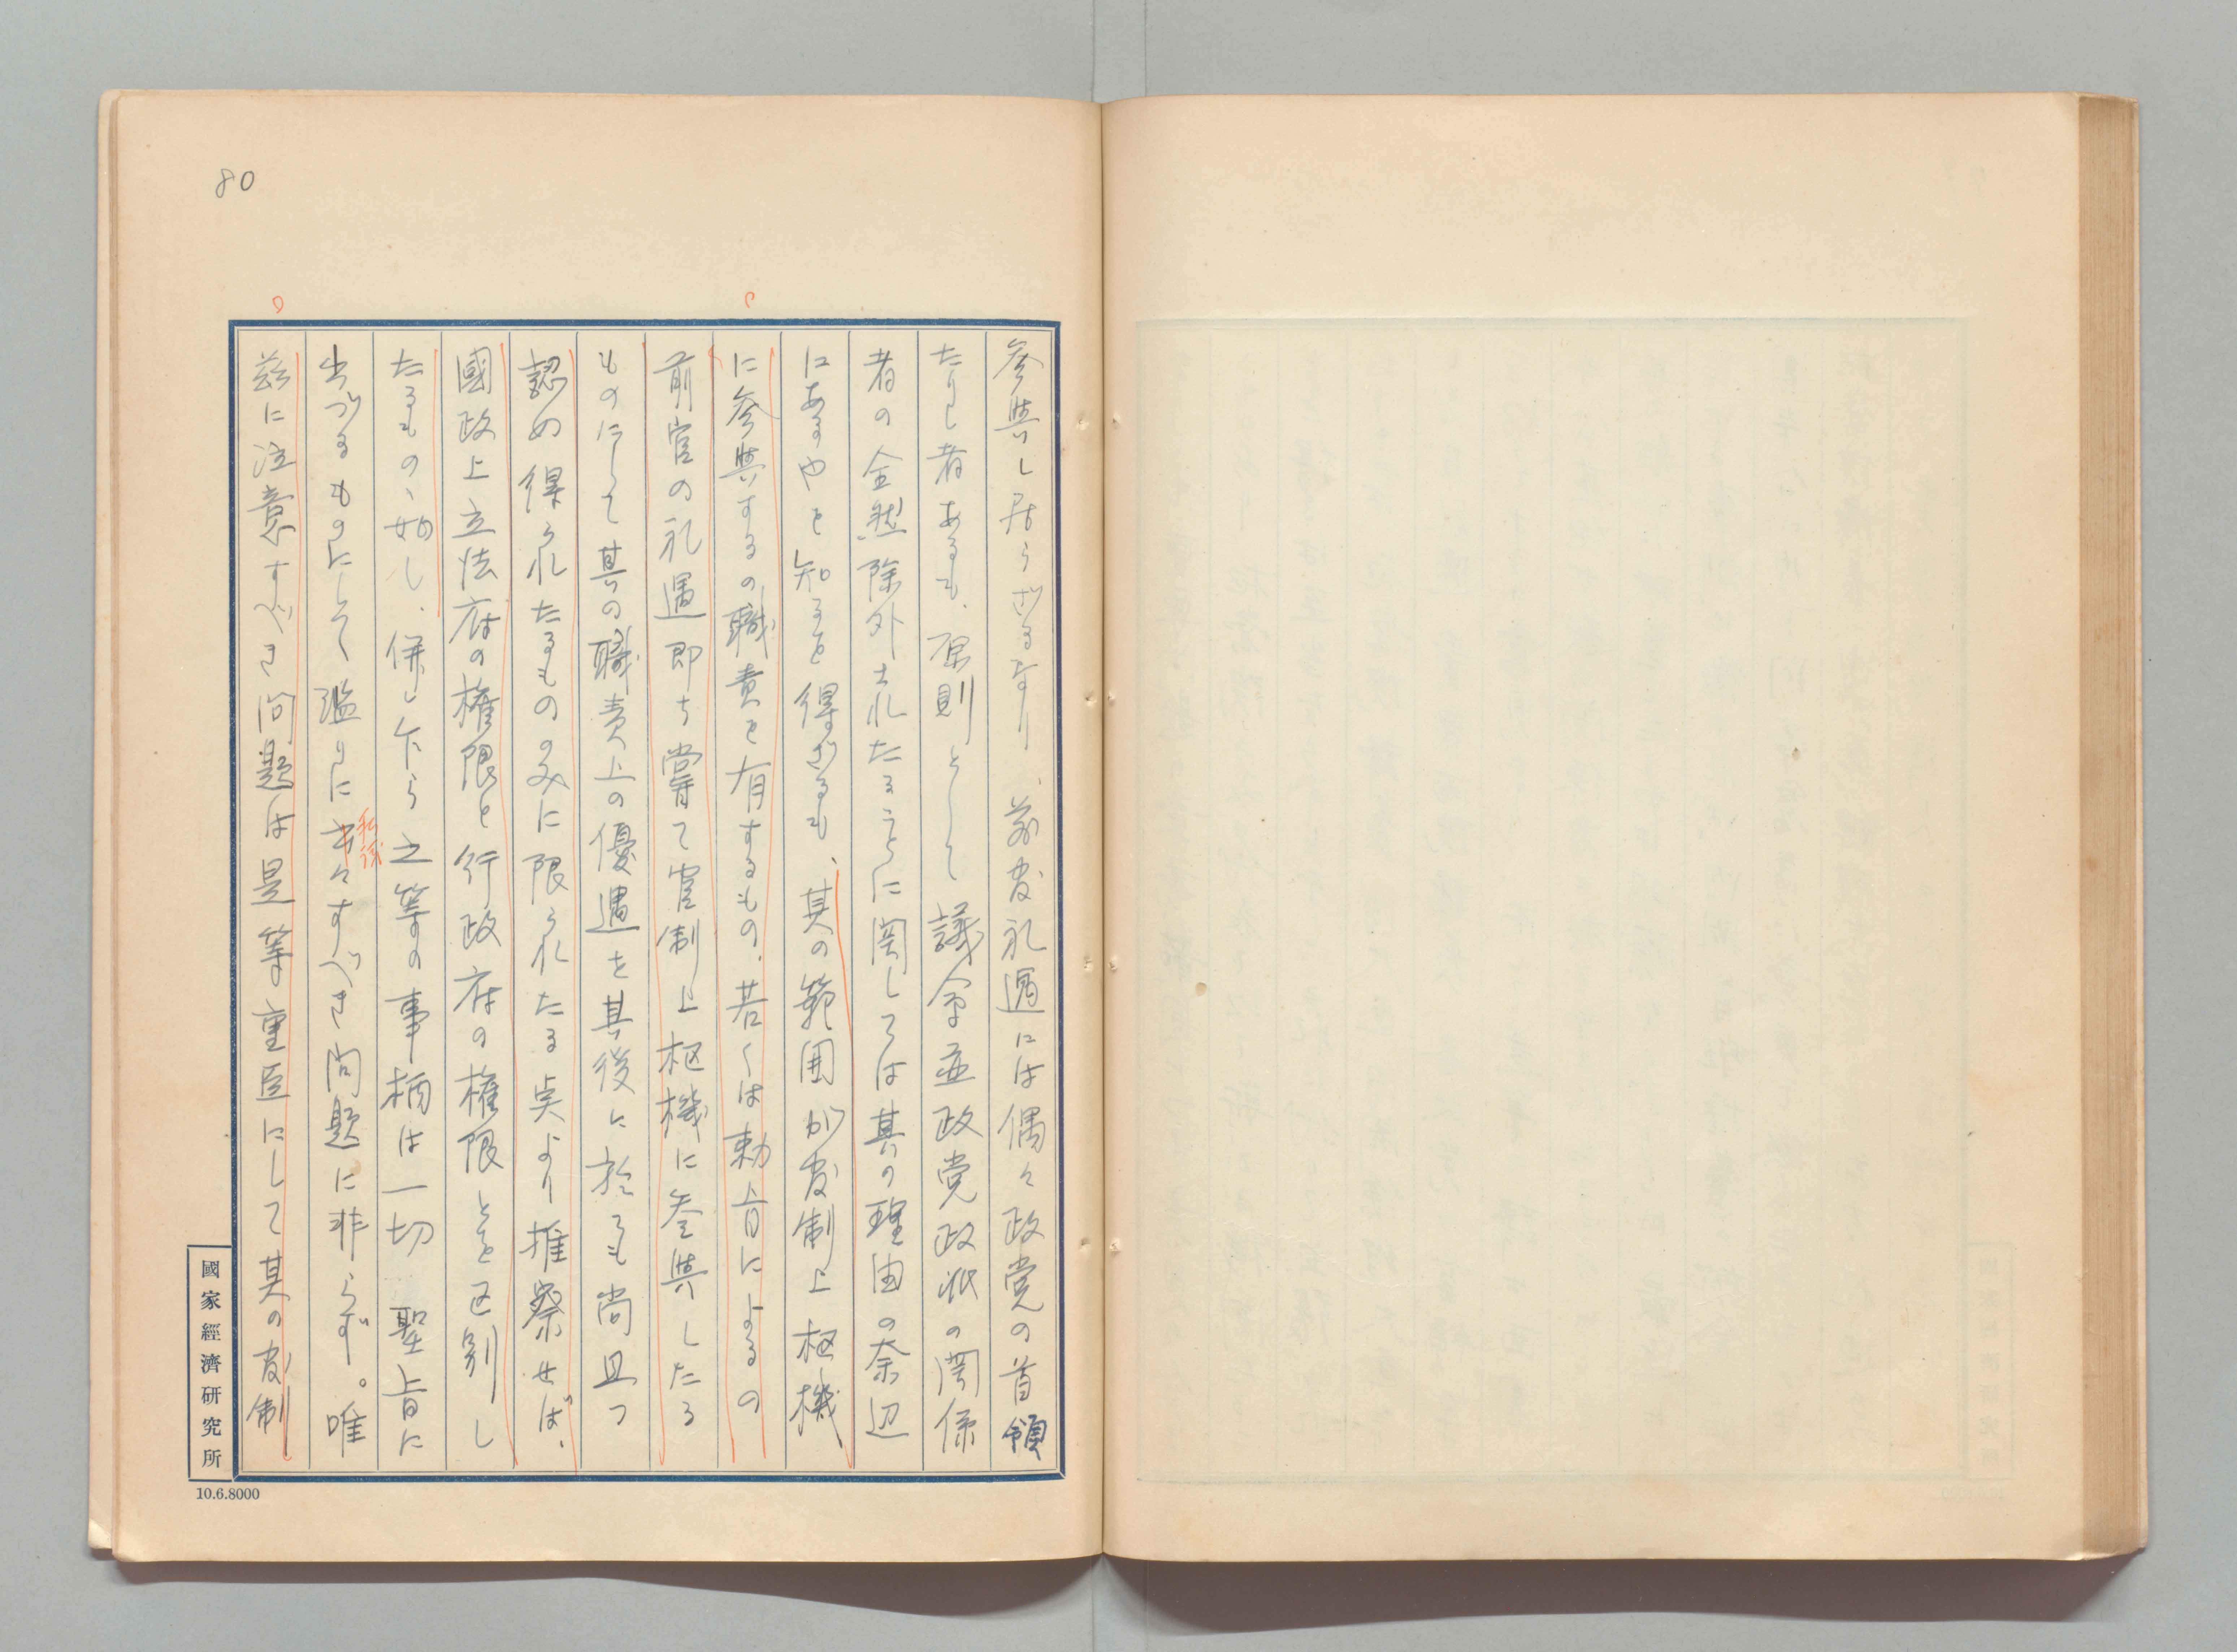 80
参与し居らざるなり、前官礼遇には偶々政党の首領
たりし者あるも、原則として議会並政党政派の関係
者の全然除外されたることに関しては其の理由の奈辺
にあるやを知るを得ざるも、其の範囲が官制上枢機
に参与するの職責を有するもの、若くは勅旨によるの
前官の礼遇即ち嘗て官制上枢機に参与したる
ものにして其の職責上の優遇を其後に於ても尚且つ
認め得られたるもののみに限られたる点より推察せば、
國政上立法府の権限と行政府の権限とを区別し
たるものゝ如し、併し乍ら之等の事柄は一切 聖旨に
出づるものにして濫りに々すべき問題に非らず。唯
私議
茲に注意すべき問題は是等重臣にして其の官制
國家經濟研究所
10.6.8000